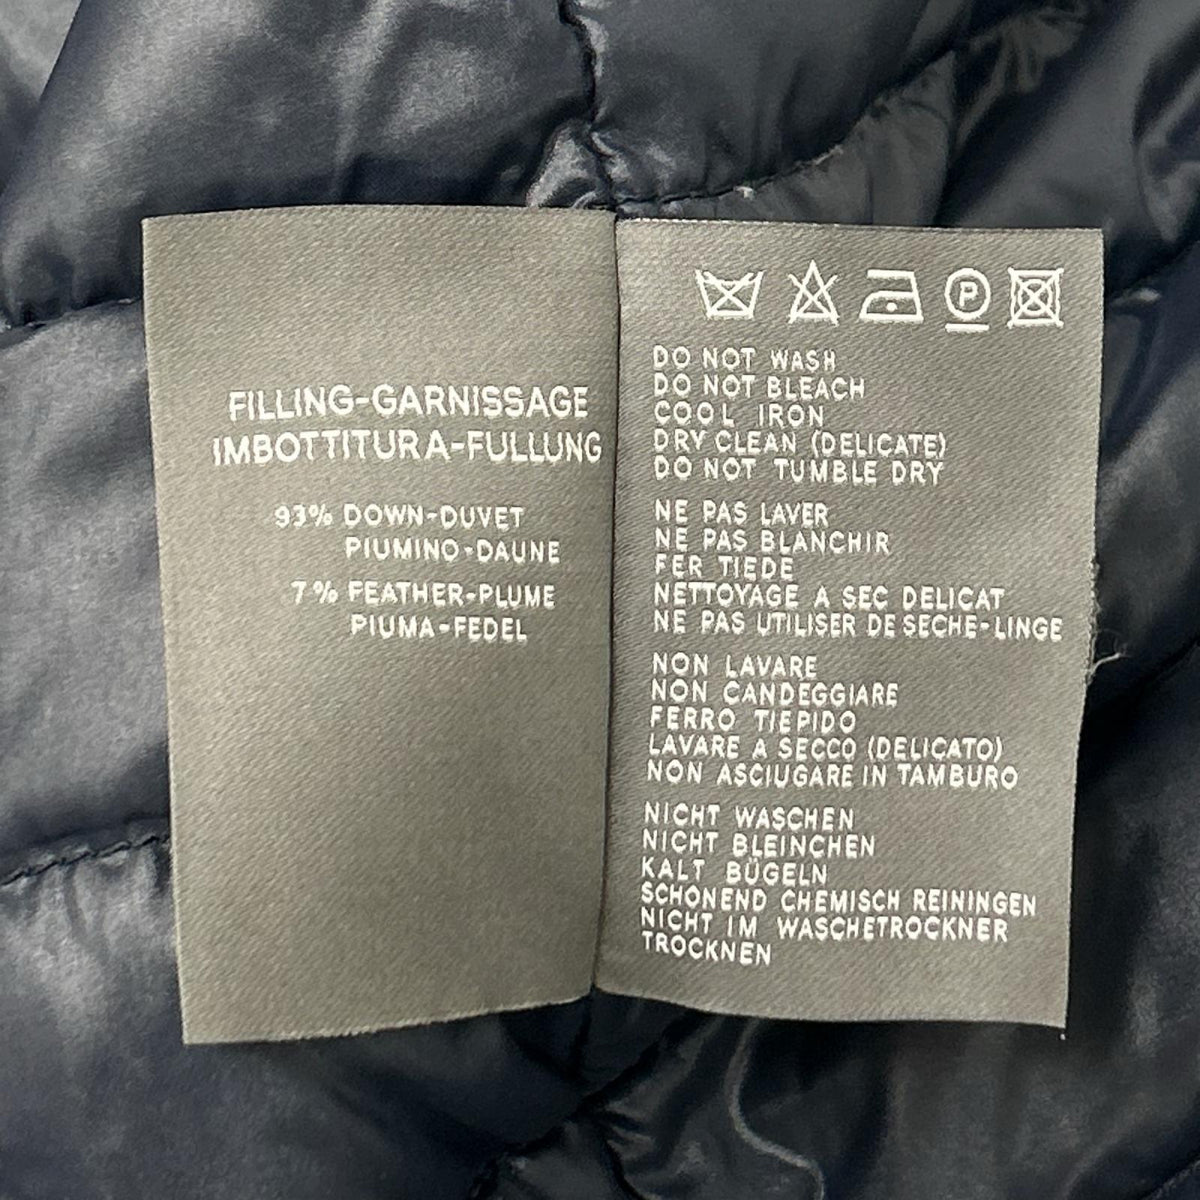 FILLING-GARNISSAGE
IMBOTTITURA-FULLUNG
93% DOWN-DUVET
PIUMINO-DAUNE
7% FEATHER-PLUME
PIUMA-FEDEL
P
DO NOT WASH
DO NOT BLEACH
COOL IRON
DRY CLEAN (DELICATE)
DO NOT TUMBLE DRY
NE PAS LAVER
NE PAS BLANCHIR
FER TIEDE
NETTOYAGE A SEC DELICAT
NE PAS UTILISER DE SECHE-LINGE
NON LAVARE
NON CANDEGGIARE
FERRO TIEPIDO
LAVARE A SECCO (DELICATO)
NON ASCIUGARE IN TAMBURO
NICHT WASCHEN
NICHT BLEINCHEN
KALT BÜGELN
SCHONEND CHEMISCH REININGEN
NICHT IM WASCHETROCKNER
TROCKNEN